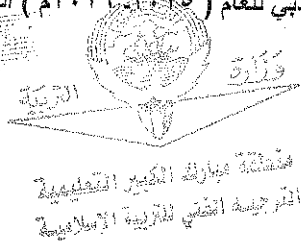 للعام ( ٢٠١٥ - ٢٠١٦م )
وزارة
التربية
منطقة مبارك الكبير التعليمية
التوجيه الفني للتربية الإسلامية